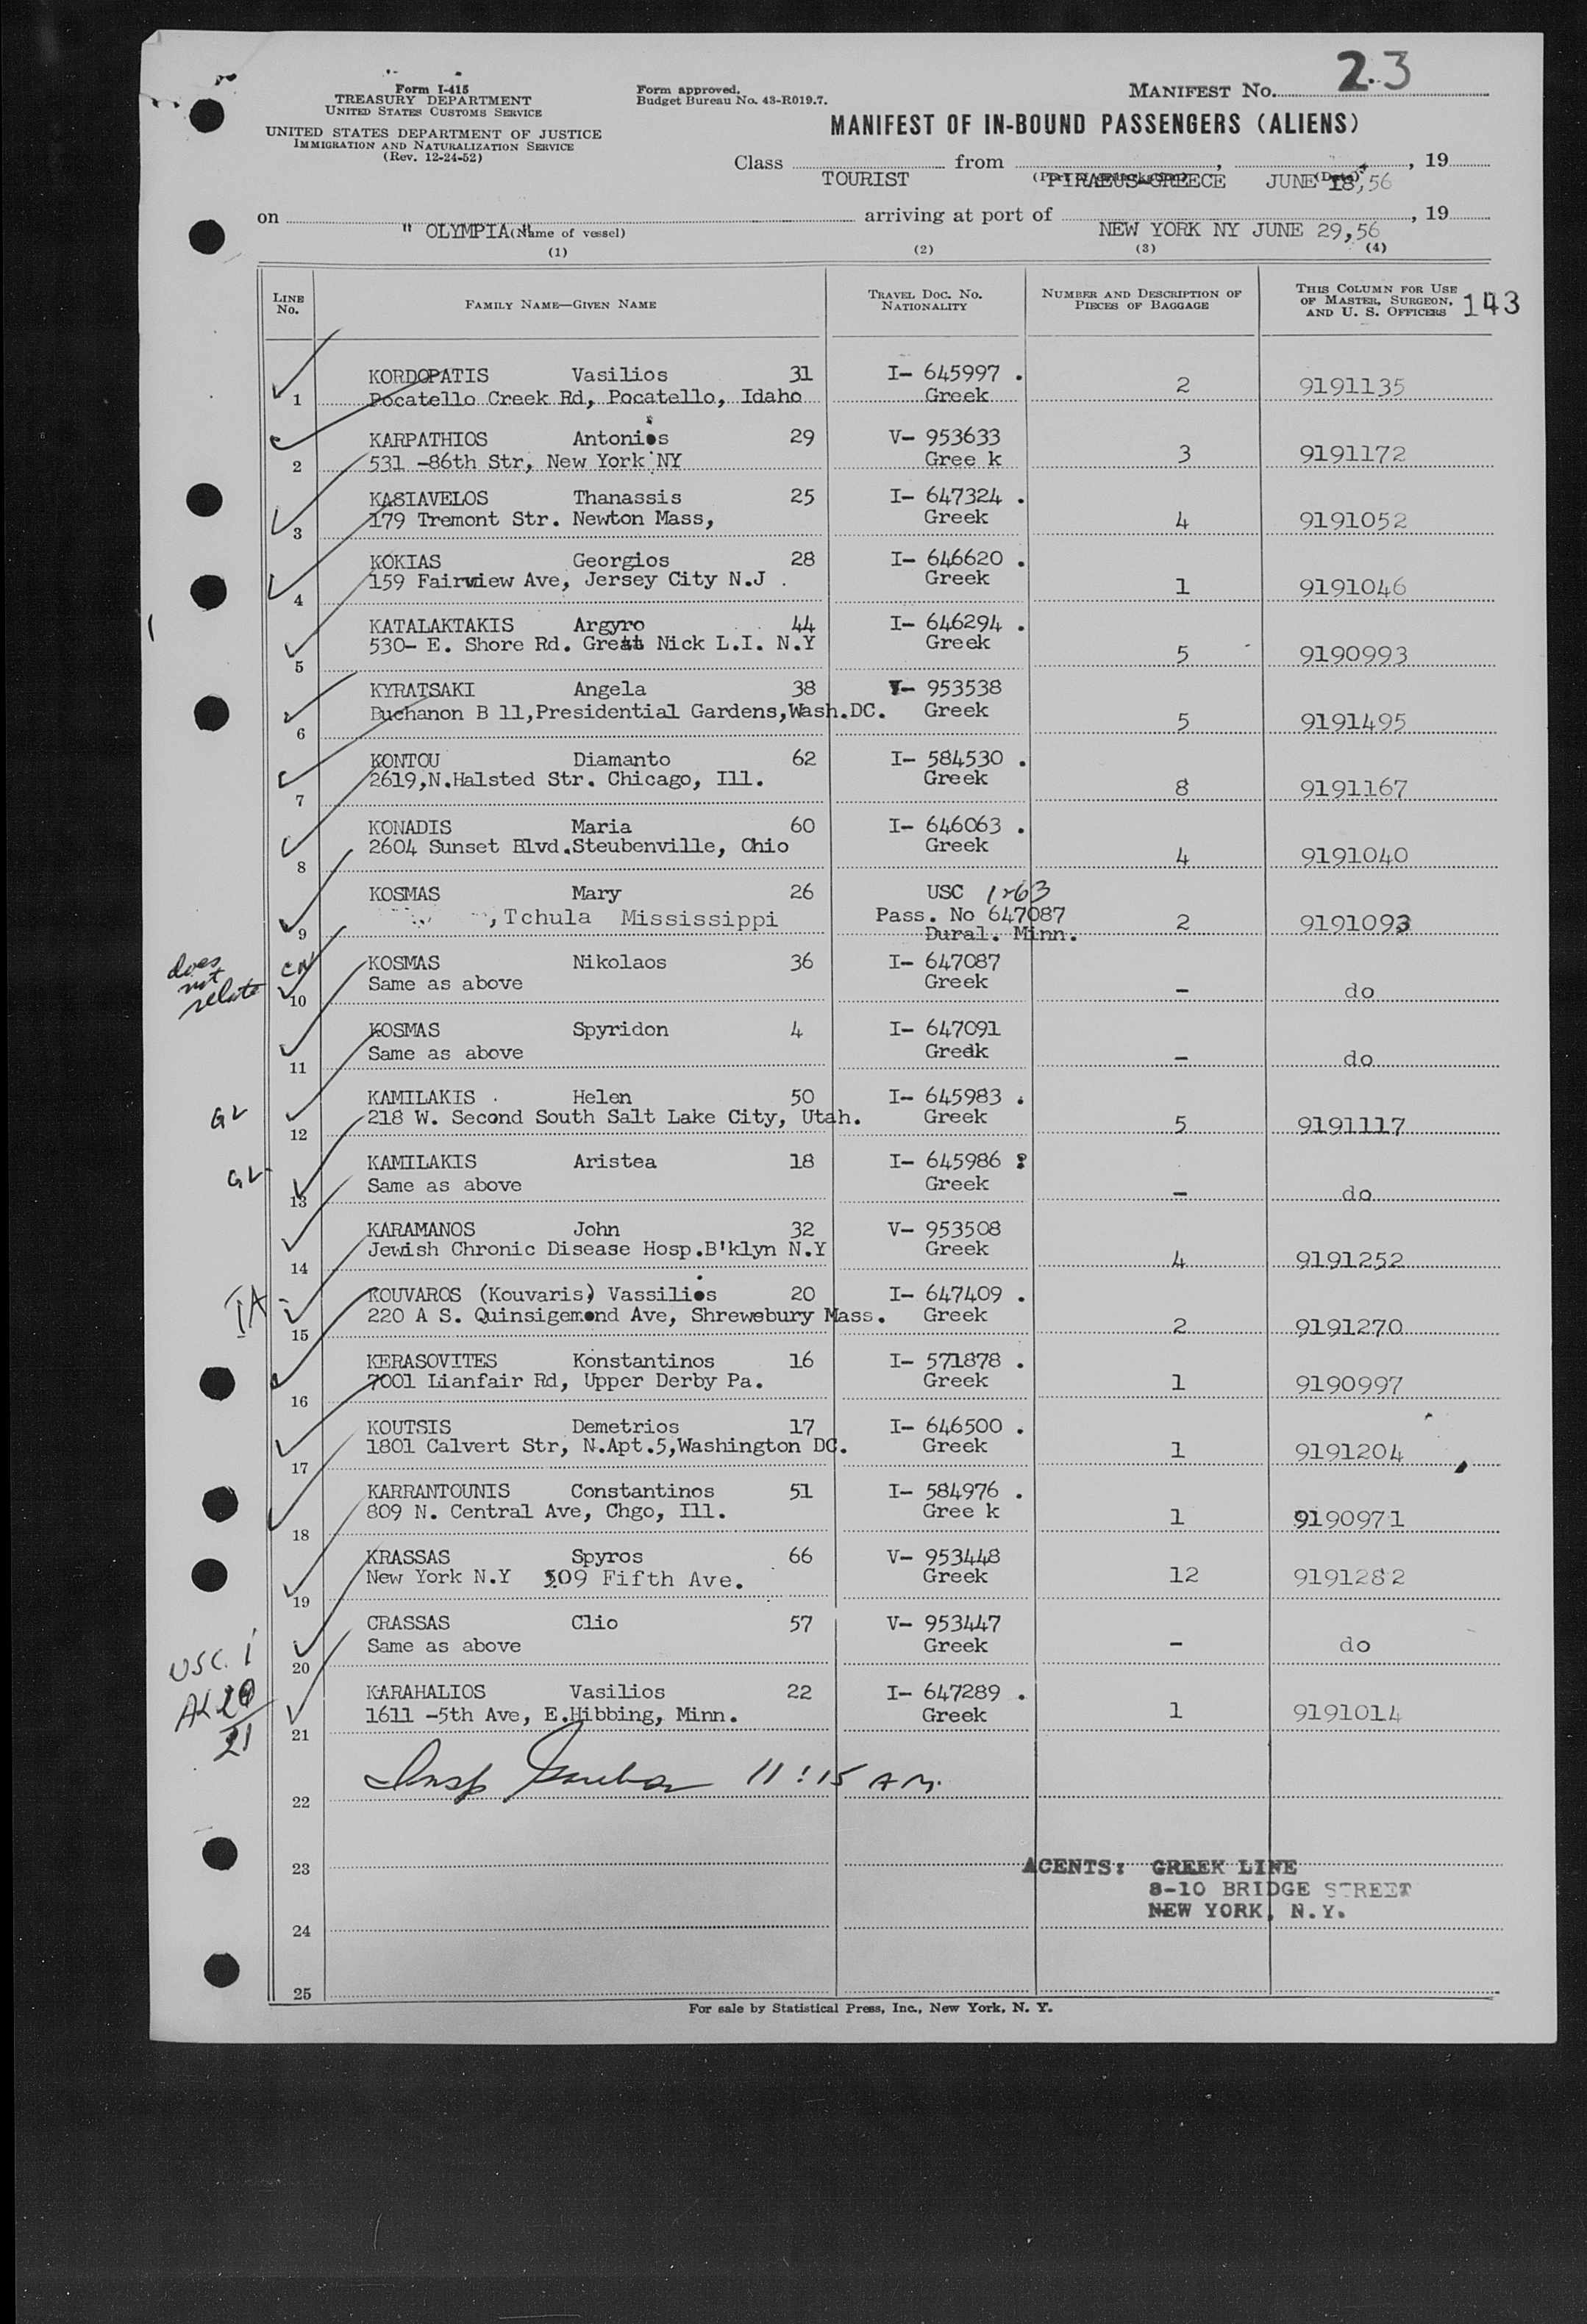 Form I-415
TREASURY DEPARTMENT
UNITED STATES CUSTOMS SERVICE
UNITED STATES DEPARTMENT OF JUSTICE
IMMIGRATION AND NATURALIZATION SERVICE
(Rev. 12-24-52)
Form approved.
Budget Bureau No. 43-R019.7.
MANIFEST No. 23
MANIFEST OF IN-BOUND PASSENGERS (ALIENS)
Class TOURIST from PIRAEUS-GREECE JUNE 18, 1956
(Date)
on " OLYMPIA " arriving at port of NEW YORK NY JUNE 29, 1956
(Name of vessel)
(1) (2) (3) (4)
LINE No. FAMILY NAME—GIVEN NAME TRAVEL DOC. No. NATIONALITY NUMBER AND DESCRIPTION OF PIECES OF BAGGAGE THIS COLUMN FOR USE OF MASTER, SURGEON, AND U. S. OFFICERS 143
KORDOPATIS Vasilios 31 I- 645997 .
1 Pocatello Creek Rd, Pocatello, Idaho Greek 2 9191135
KARPATHIOS Antonios 29 V- 953633
2 531 -86th Str, New York NY Gree k 3 9191172
KASIAVELOS Thanassis 25 I- 647324 .
3 179 Tremont Str. Newton Mass, Greek 4 9191052
KOKIAS Georgios 28 I- 646620 .
4 159 Fairview Ave, Jersey City N.J . Greek 1 9191046
KATALAKTAKIS Argyro 44 I- 646294 .
5 530- E. Shore Rd. Great Nick L.I. N.Y Greek 5 9190993
KYRATSAKI Angela 38 V- 953538
6 Buchanon B 11,Presidential Gardens,Wash.DC. Greek 5 9191495
KONTOU Diamanto 62 I- 584530 .
7 2619,N.Halsted Str. Chicago, Ill. Greek 8 9191167
KONADIS Maria 60 I- 646063 .
8 2604 Sunset Blvd.Steubenville, Ohio Greek 4 9191040
KOSMAS Mary 26 USC 1263
9 ,Tchula Mississippi Pass. No 647087 2 9191093
Dural. Minn.
does not relate
CN
KOSMAS Nikolaos 36 I- 647087
10 Same as above Greek - do
KOSMAS Spyridon 4 I- 647091
11 Same as above Gredk - do
GL
KAMILAKIS . Helen 50 I- 645983 .
12 218 W. Second South Salt Lake City, Utah. Greek 5 9191117
GL
KAMILAKIS Aristea 18 I- 645986
13 Same as above Greek - do
KARAMANOS John 32 V- 953508
14 Jewish Chronic Disease Hosp.B'klyn N.Y Greek 4 9191252
IA
KOUVAROS (Kouvaris) Vassilios 20 I- 647409 .
15 220 A S. Quinsigemond Ave, Shrewsbury Mass. Greek 2 9191270
KERASOVITES Konstantinos 16 I- 571878 .
16 7001 Lianfair Rd, Upper Derby Pa. Greek 1 9190997
KOUTSIS Demetrios 17 I- 646500 .
17 1801 Calvert Str, N.Apt.5,Washington DC. Greek 1 9191204
KARRANTOUNIS Constantinos 51 I- 584976 .
18 809 N. Central Ave, Chgo, Ill. Gree k 1 9190971
KRASSAS Spyros 66 V- 953448
19 New York N.Y 509 Fifth Ave. Greek 12 9191282
CRASSAS Clio 57 V- 953447
20 Same as above Greek - do
USC. 1
AL 20
21
KARAHALIOS Vasilios 22 I- 647289 .
21 1611 -5th Ave, E.Hibbing, Minn. Greek 1 9191014
22 Insp 11:15 AM.
23
AGENTS: GREEK LINE
8-10 BRIDGE STREET
NEW YORK, N.Y.
24
25
For sale by Statistical Press, Inc., New York, N. Y.